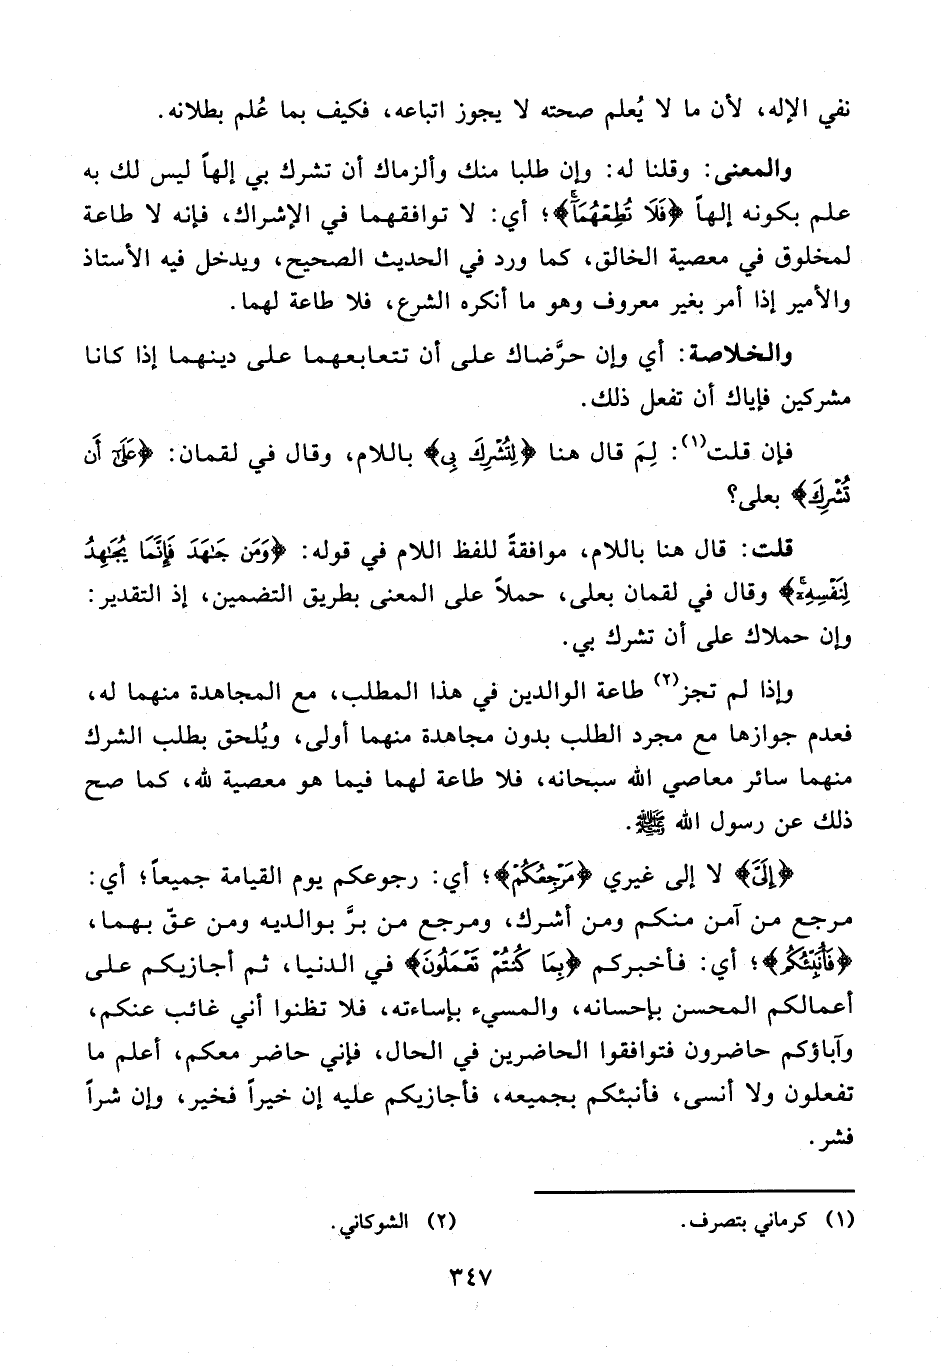 نفي الإله، لأن ما لا يُعلم صحته لا يجوز اتباعه، فكيف بما عُلم بطلانه.
والمعنى: وقلنا له: وإن طلبا منك وألزماك أن تشرك بي إلهاً ليس لك به
علم بكونه إلهاً ﴿فَلَا تُطِعْهُمَآ﴾؛ أي: لا توافقهما في الإشراك، فإنه لا طاعة
لمخلوق في معصية الخالق، كما ورد في الحديث الصحيح، ويدخل فيه الأستاذ
والأمير إذا أمر بغير معروف وهو ما أنكره الشرع، فلا طاعة لهما.
والخلاصة: أي وإن حرَّضاك على أن تتعابعهما على دينهما إذا كانا
مشركين فإياك أن تفعل ذلك.
فإن قلت(١): لِمَ قال هنا ﴿لِتُشْرِكَ بِى﴾ باللام، وقال في لقمان: ﴿عَلَىٰٓ أَن
تُشْرِكَ﴾ بعلى؟
قلت: قال هنا باللام، موافقةً للفظ اللام في قوله: ﴿وَمَن جَٰهَدَ فَإِنَّمَا يُجَٰهِدُ
لِنَفْسِهِۦٓ﴾ وقال في لقمان بعلى، حملاً على المعنى بطريق التضمين، إذ التقدير:
وإن حملاك على أن تشرك بي.
وإذا لم تجز(٢) طاعة الوالدين في هذا المطلب، مع المجاهدة منهما له،
فعدم جوازها مع مجرد الطلب بدون مجاهدة منهما أولى، ويُلحق بطلب الشرك
منهما سائر معاصي الله سبحانه، فلا طاعة لهما فيما هو معصية لله، كما صح
ذلك عن رسول الله ﷺ.
﴿إِلَىَّ﴾ لا إلى غيري ﴿مَرْجِعُكُمْ﴾؛ أي: رجوعكم يوم القيامة جميعاً؛ أي:
مرجع من آمن منكم ومن أشرك، ومرجع من برَّ بوالديه ومن عقّ بهما،
﴿فَأُنَبِّئُكُم﴾؛ أي: فأخبركم ﴿بِمَا كُنتُمْ تَعْمَلُونَ﴾ في الدنيا، ثم أجازيكم على
أعمالكم المحسن بإحسانه، والمسيء بإساءته، فلا تظنوا أني غائب عنكم،
وآباؤكم حاضرون فتوافقوا الحاضرين في الحال، فإني حاضر معكم، أعلم ما
تفعلون ولا أنسى، فأنبئكم بجميعه، فأجازيكم عليه إن خيراً فخير، وإن شراً
فشر.
(١) كرماني بتصرف.
(٢) الشوكاني.
٣٤٧